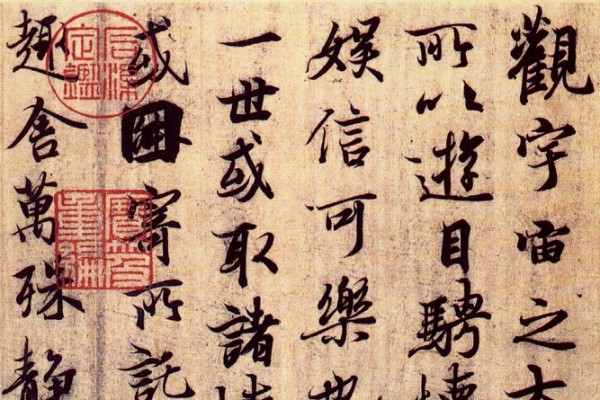 觀宇宙之大
所以遊目騁懷
娛信可樂也
一世或取諸懷
或因寄所託
趣舍萬殊靜
石渠定鑑
寶笈重編